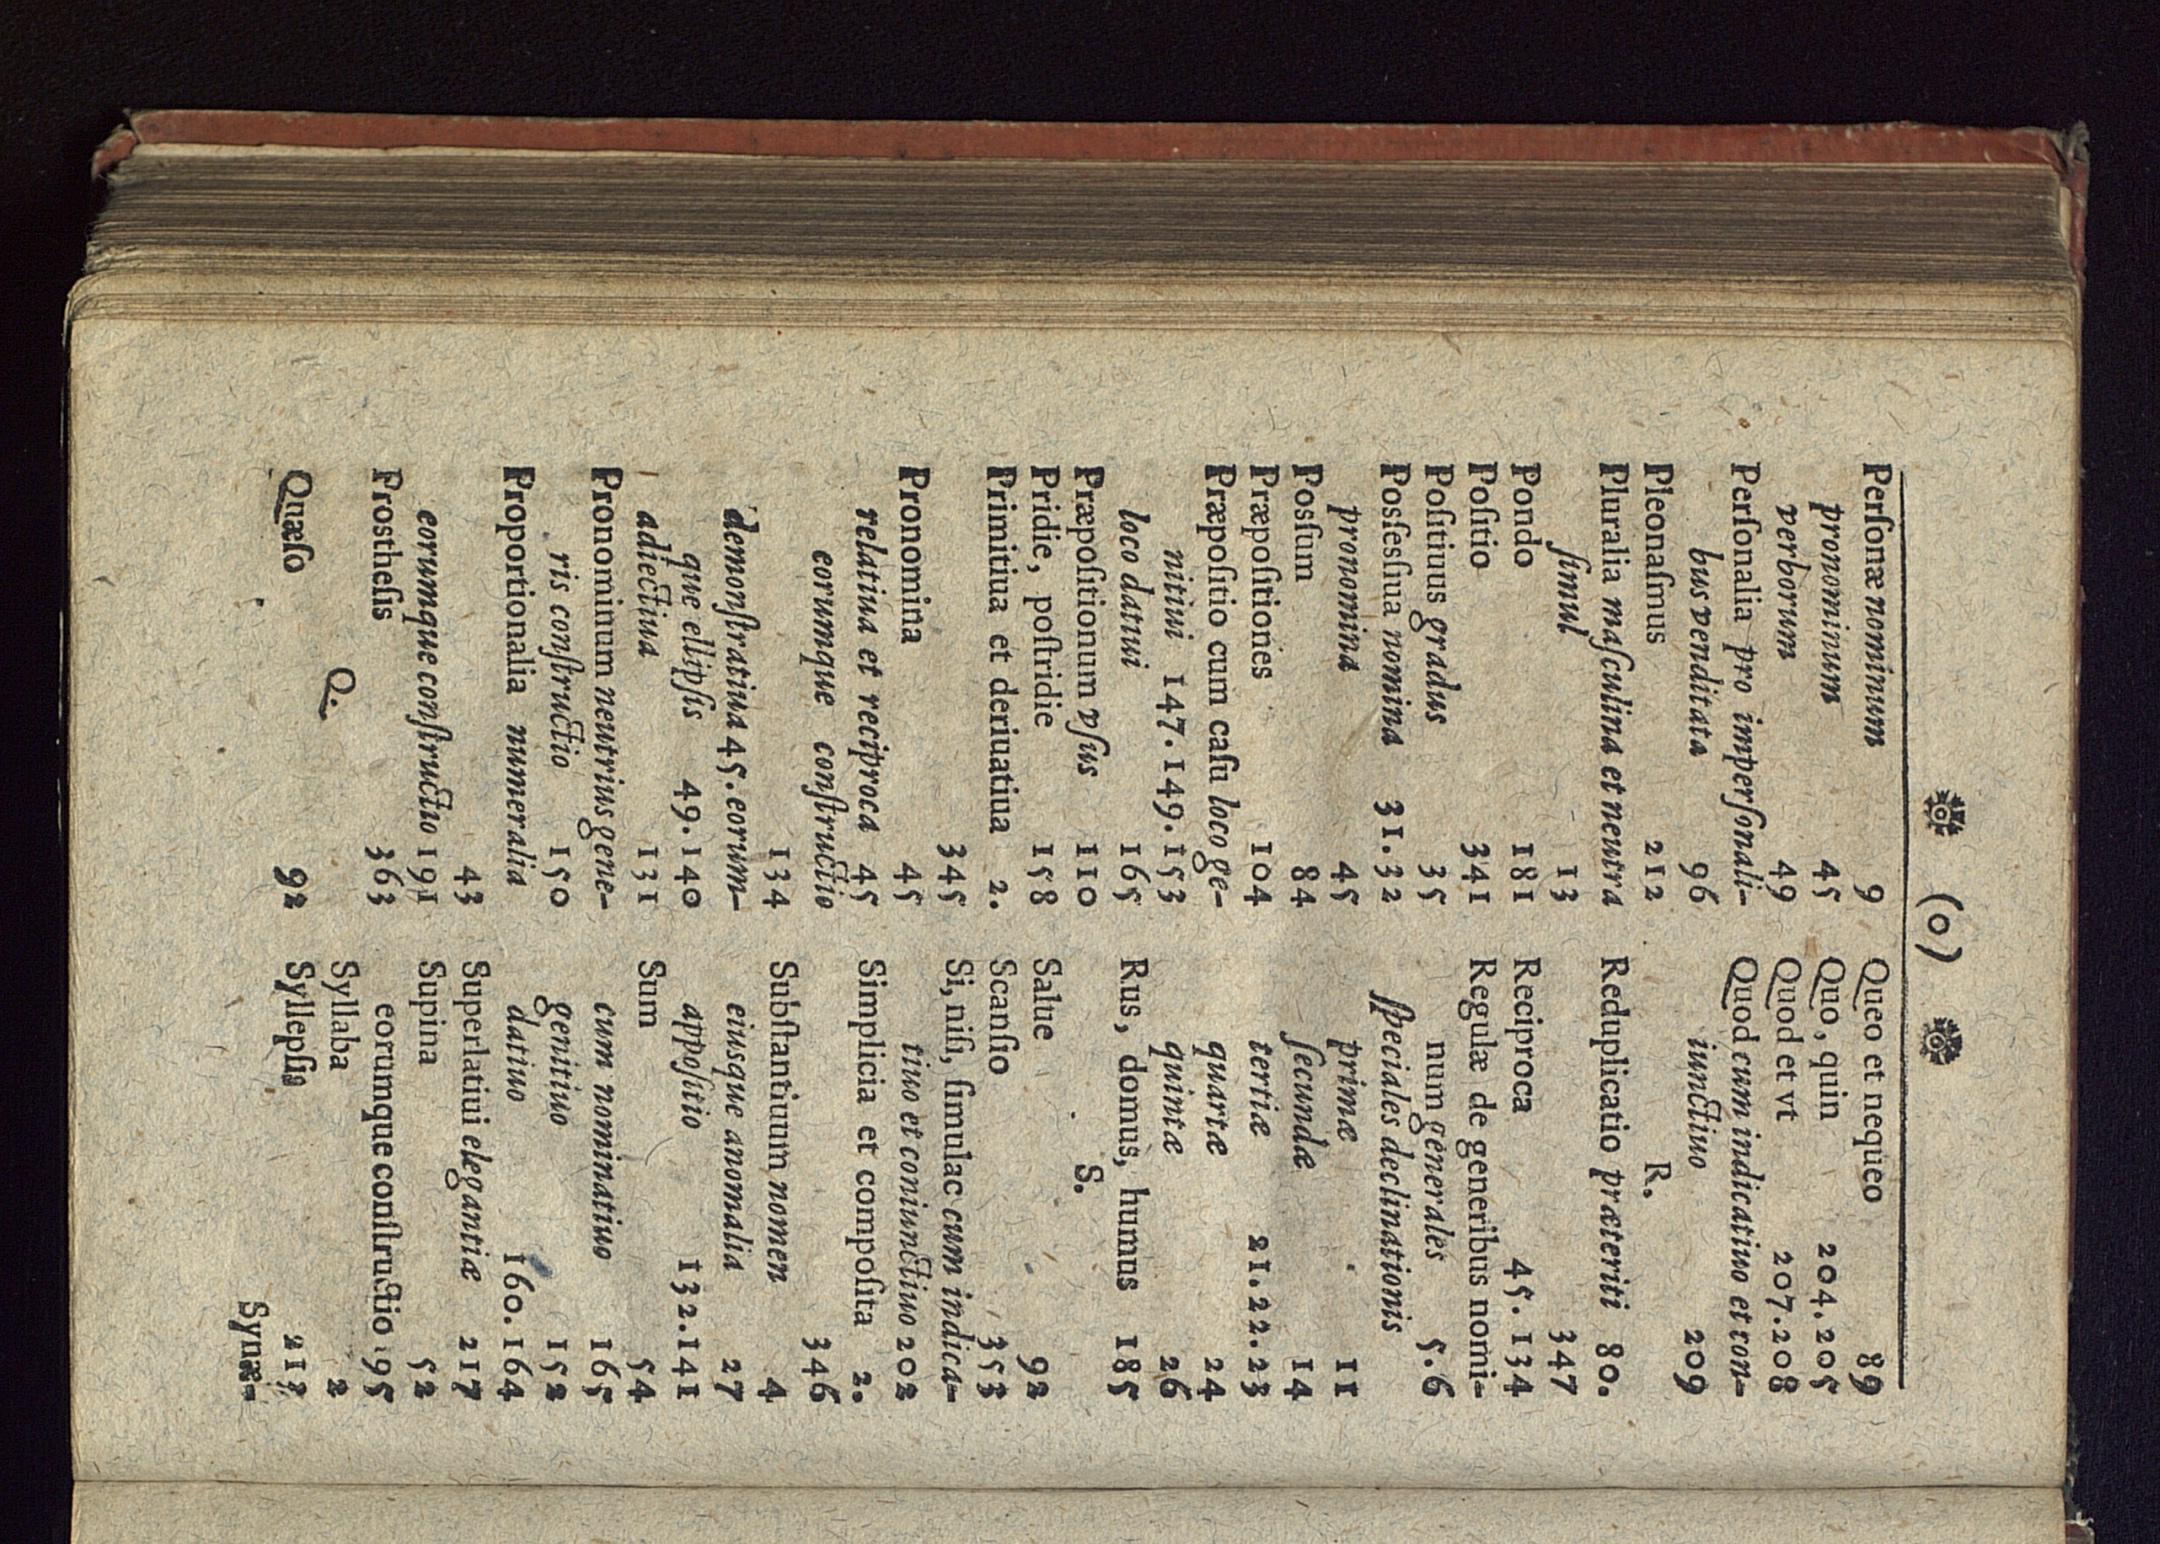 ❁ (o) ❁
Perſonæ nominum 9
pronominum 45
verborum 49
Perſonalia pro imperſonali-
bus venditata 96
Pleonaſmus 212
Pluralia maſculina et neutra
ſimul 13
Pondo 181
Poſitio 341
Poſitiuus gradus 35
Posſesſiua nomina 31.32
pronomina 45
Posſum 84
Præpoſitiones 104
Præpoſitio cum caſu loco ge-
nitiui 147.149.153
loco datiui 165
Præpoſitionum vſus 110
Pridie, poſtridie 158
Primitiua et deriuatiua 2.
345
Pronomina 45
relatiua et reciproca 45
eorumque conſtructio
134
demonſtratiua 45. eorum-
que ellipſis 49.140
adiectiua 131
Pronominum neutrius gene-
ris conſtructio 150
Proportionalia numeralia
43
eorumque conſtructio 191
Prostheſis 363
Q.
Quæſo 92
Queo et nequeo 89
Quo, quin 204.205
Quod et vt 207.208
Quod cum indicatiuo et con-
iunctiuo 209
R.
Reduplicatio præteriti 80.
347
Reciproca 45.134
Regulæ de generibus nomi-
num generales 5.6
ſpeciales declinationis
primæ 11
ſecundæ 14
tertiæ 21.22.23
quartæ 24
quintæ 26
Rus, domus, humus 185
S.
Salue 92
Scanſio 353
Si, niſi, ſimulac cum indica-
tiuo et coniunctiuo 202
Simplicia et compoſita 2.
346
Subſtantiuum nomen 4
eiusque anomalia 27
appoſitio 132.141
Sum 54
cum nominatiuo 165
genitiuo 152
datiuo 160.164
Superlatiui elegantiæ 217
Supina 52
eorumque conſtructio 195
Syllaba 2
Syllepſis 213
Synæ-